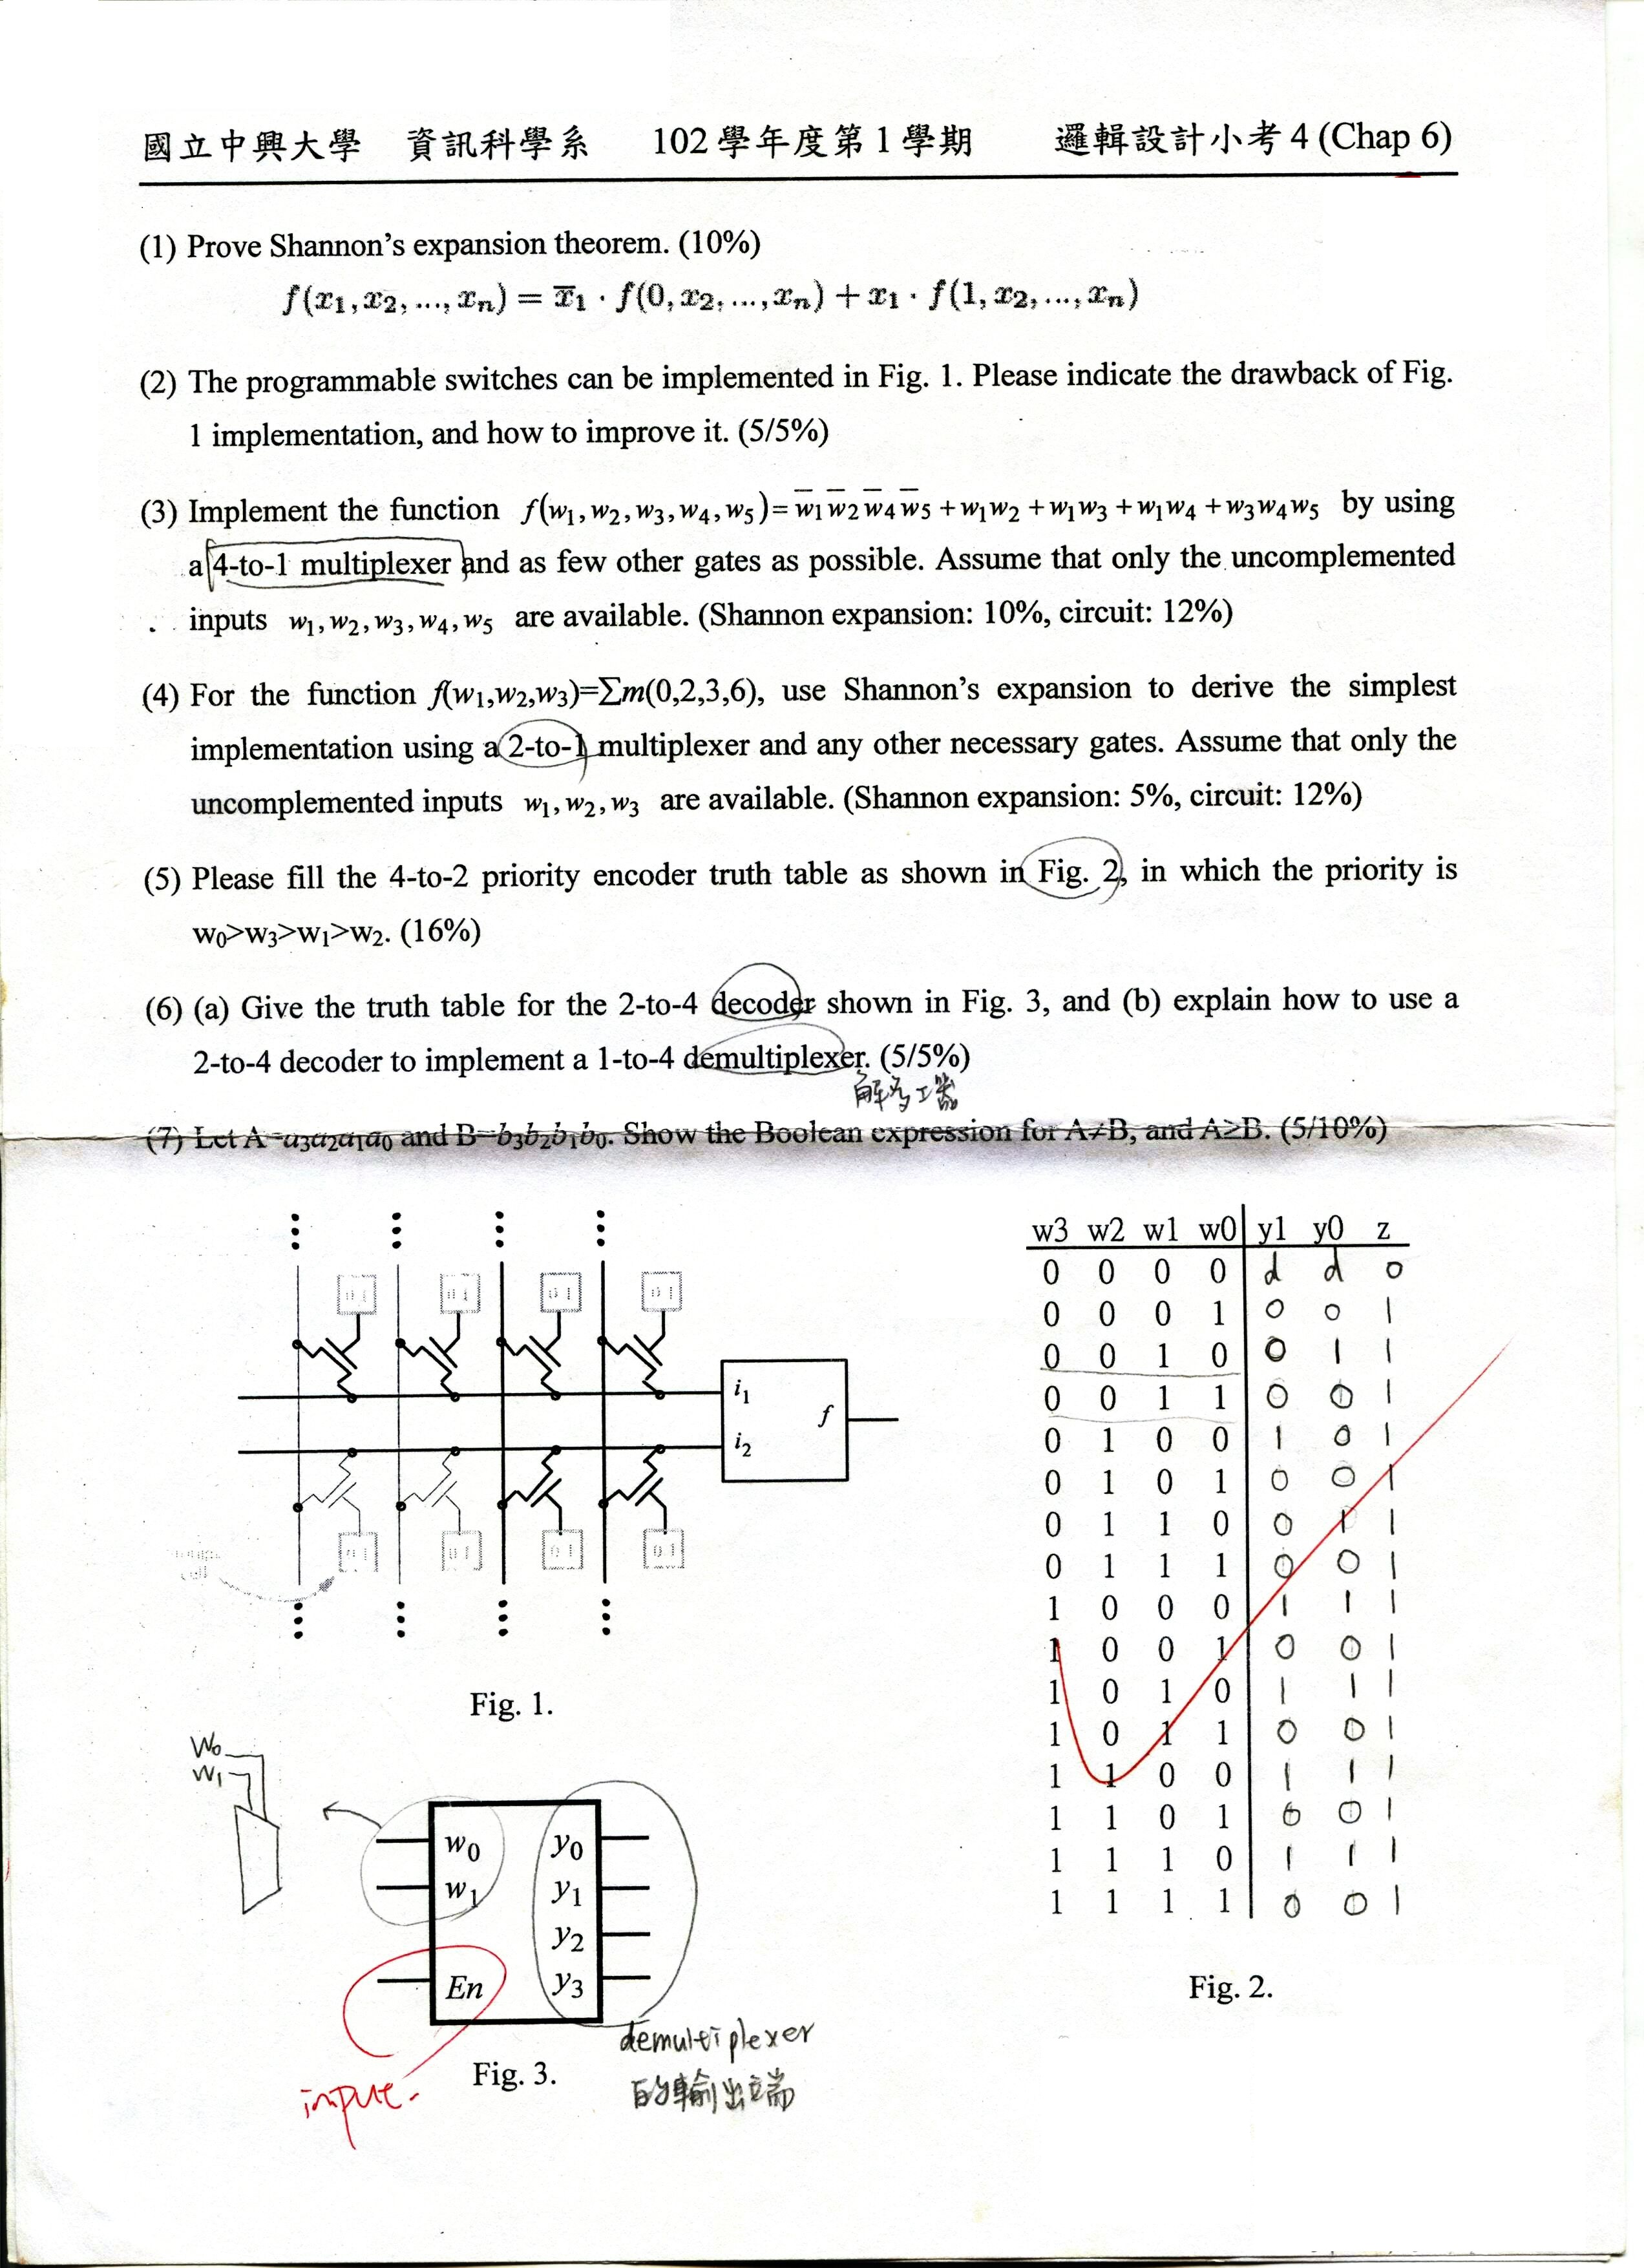 國立中興大學 資訊科學系 102學年度第1學期 邏輯設計小考4 (Chap 6)
(1) Prove Shannon's expansion theorem. (10%)
f(x₁, x₂, ..., xₙ) = x̅₁ · f(0, x₂, ..., xₙ) + x₁ · f(1, x₂, ..., xₙ)
(2) The programmable switches can be implemented in Fig. 1. Please indicate the drawback of Fig.
1 implementation, and how to improve it. (5/5%)
(3) Implement the function f(w₁, w₂, w₃, w₄, w₅)= w̅₁w̅₂w̅₄w̅₅ +w₁w₂ +w₁w₃ +w₁w₄ +w₃w₄w₅ by using
a 4-to-1 multiplexer and as few other gates as possible. Assume that only the uncomplemented
inputs w₁, w₂, w₃, w₄, w₅ are available. (Shannon expansion: 10%, circuit: 12%)
(4) For the function f(w₁,w₂,w₃)=∑m(0,2,3,6), use Shannon's expansion to derive the simplest
implementation using a 2-to-1 multiplexer and any other necessary gates. Assume that only the
uncomplemented inputs w₁, w₂, w₃ are available. (Shannon expansion: 5%, circuit: 12%)
(5) Please fill the 4-to-2 priority encoder truth table as shown in Fig. 2, in which the priority is
w₀>w₃>w₁>w₂. (16%)
(6) (a) Give the truth table for the 2-to-4 decoder shown in Fig. 3, and (b) explain how to use a
2-to-4 decoder to implement a 1-to-4 demultiplexer. (5/5%)
解多工器
(7) Let A=a₃a₂a₁a₀ and B=b₃b₂b₁b₀. Show the Boolean expression for A≠B, and A≥B. (5/10%)
0/1 0/1 0/1 0/1
i₁
f
i₂
0/1 0/1 0/1 0/1
Fig. 1.
w3 w2 w1 w0 y1 y0 z
0 0 0 0 d d 0
0 0 0 1 0 0 1
0 0 1 0 0 1 1
0 0 1 1 0 0 1
0 1 0 0 1 0 1
0 1 0 1 0 0 1
0 1 1 0 0 1 1
0 1 1 1 0 0 1
1 0 0 0 1 1 1
1 0 0 1 0 0 1
1 0 1 0 1 1 1
1 0 1 1 0 0 1
1 1 0 0 1 1 1
1 1 0 1 0 0 1
1 1 1 0 1 1 1
1 1 1 1 0 0 1
Fig. 2.
W₀
W₁
w₀ y₀
w₁ y₁
y₂
En y₃
Fig. 3.
input.
demultiplexer
的輸出端